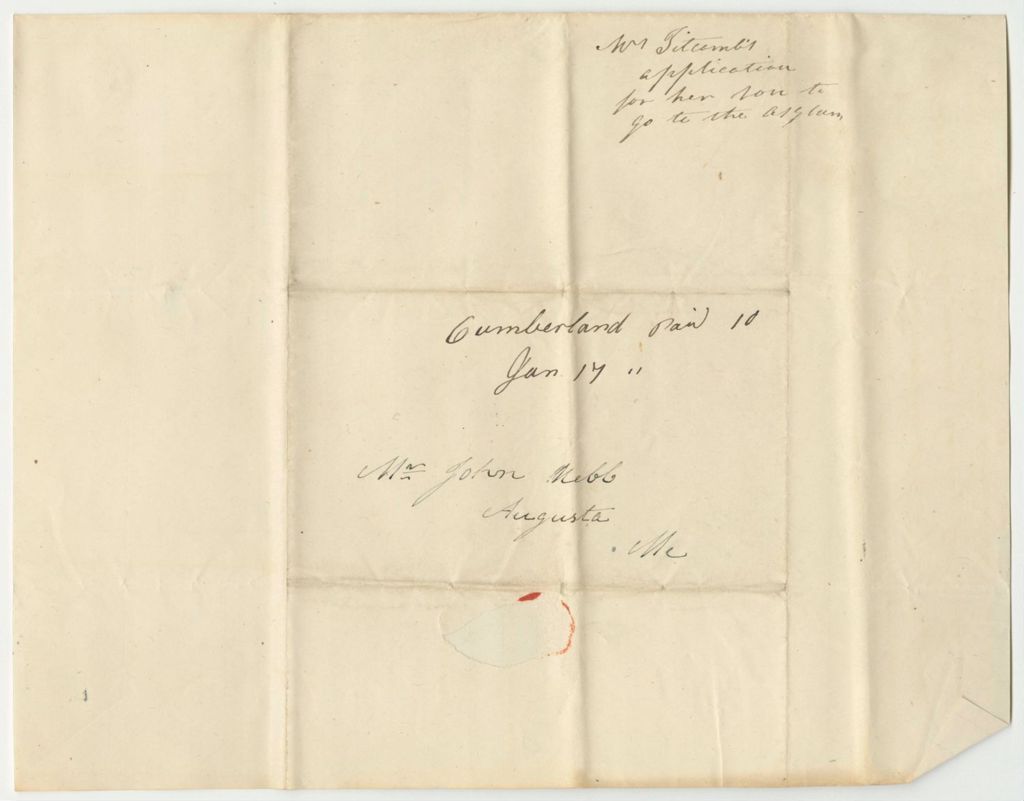 Mrs Titcomb's
application
for her son to
go to the Asylum
Cumberland Paid 10
Jan 17 "
Mr John Webb
Augusta
Me